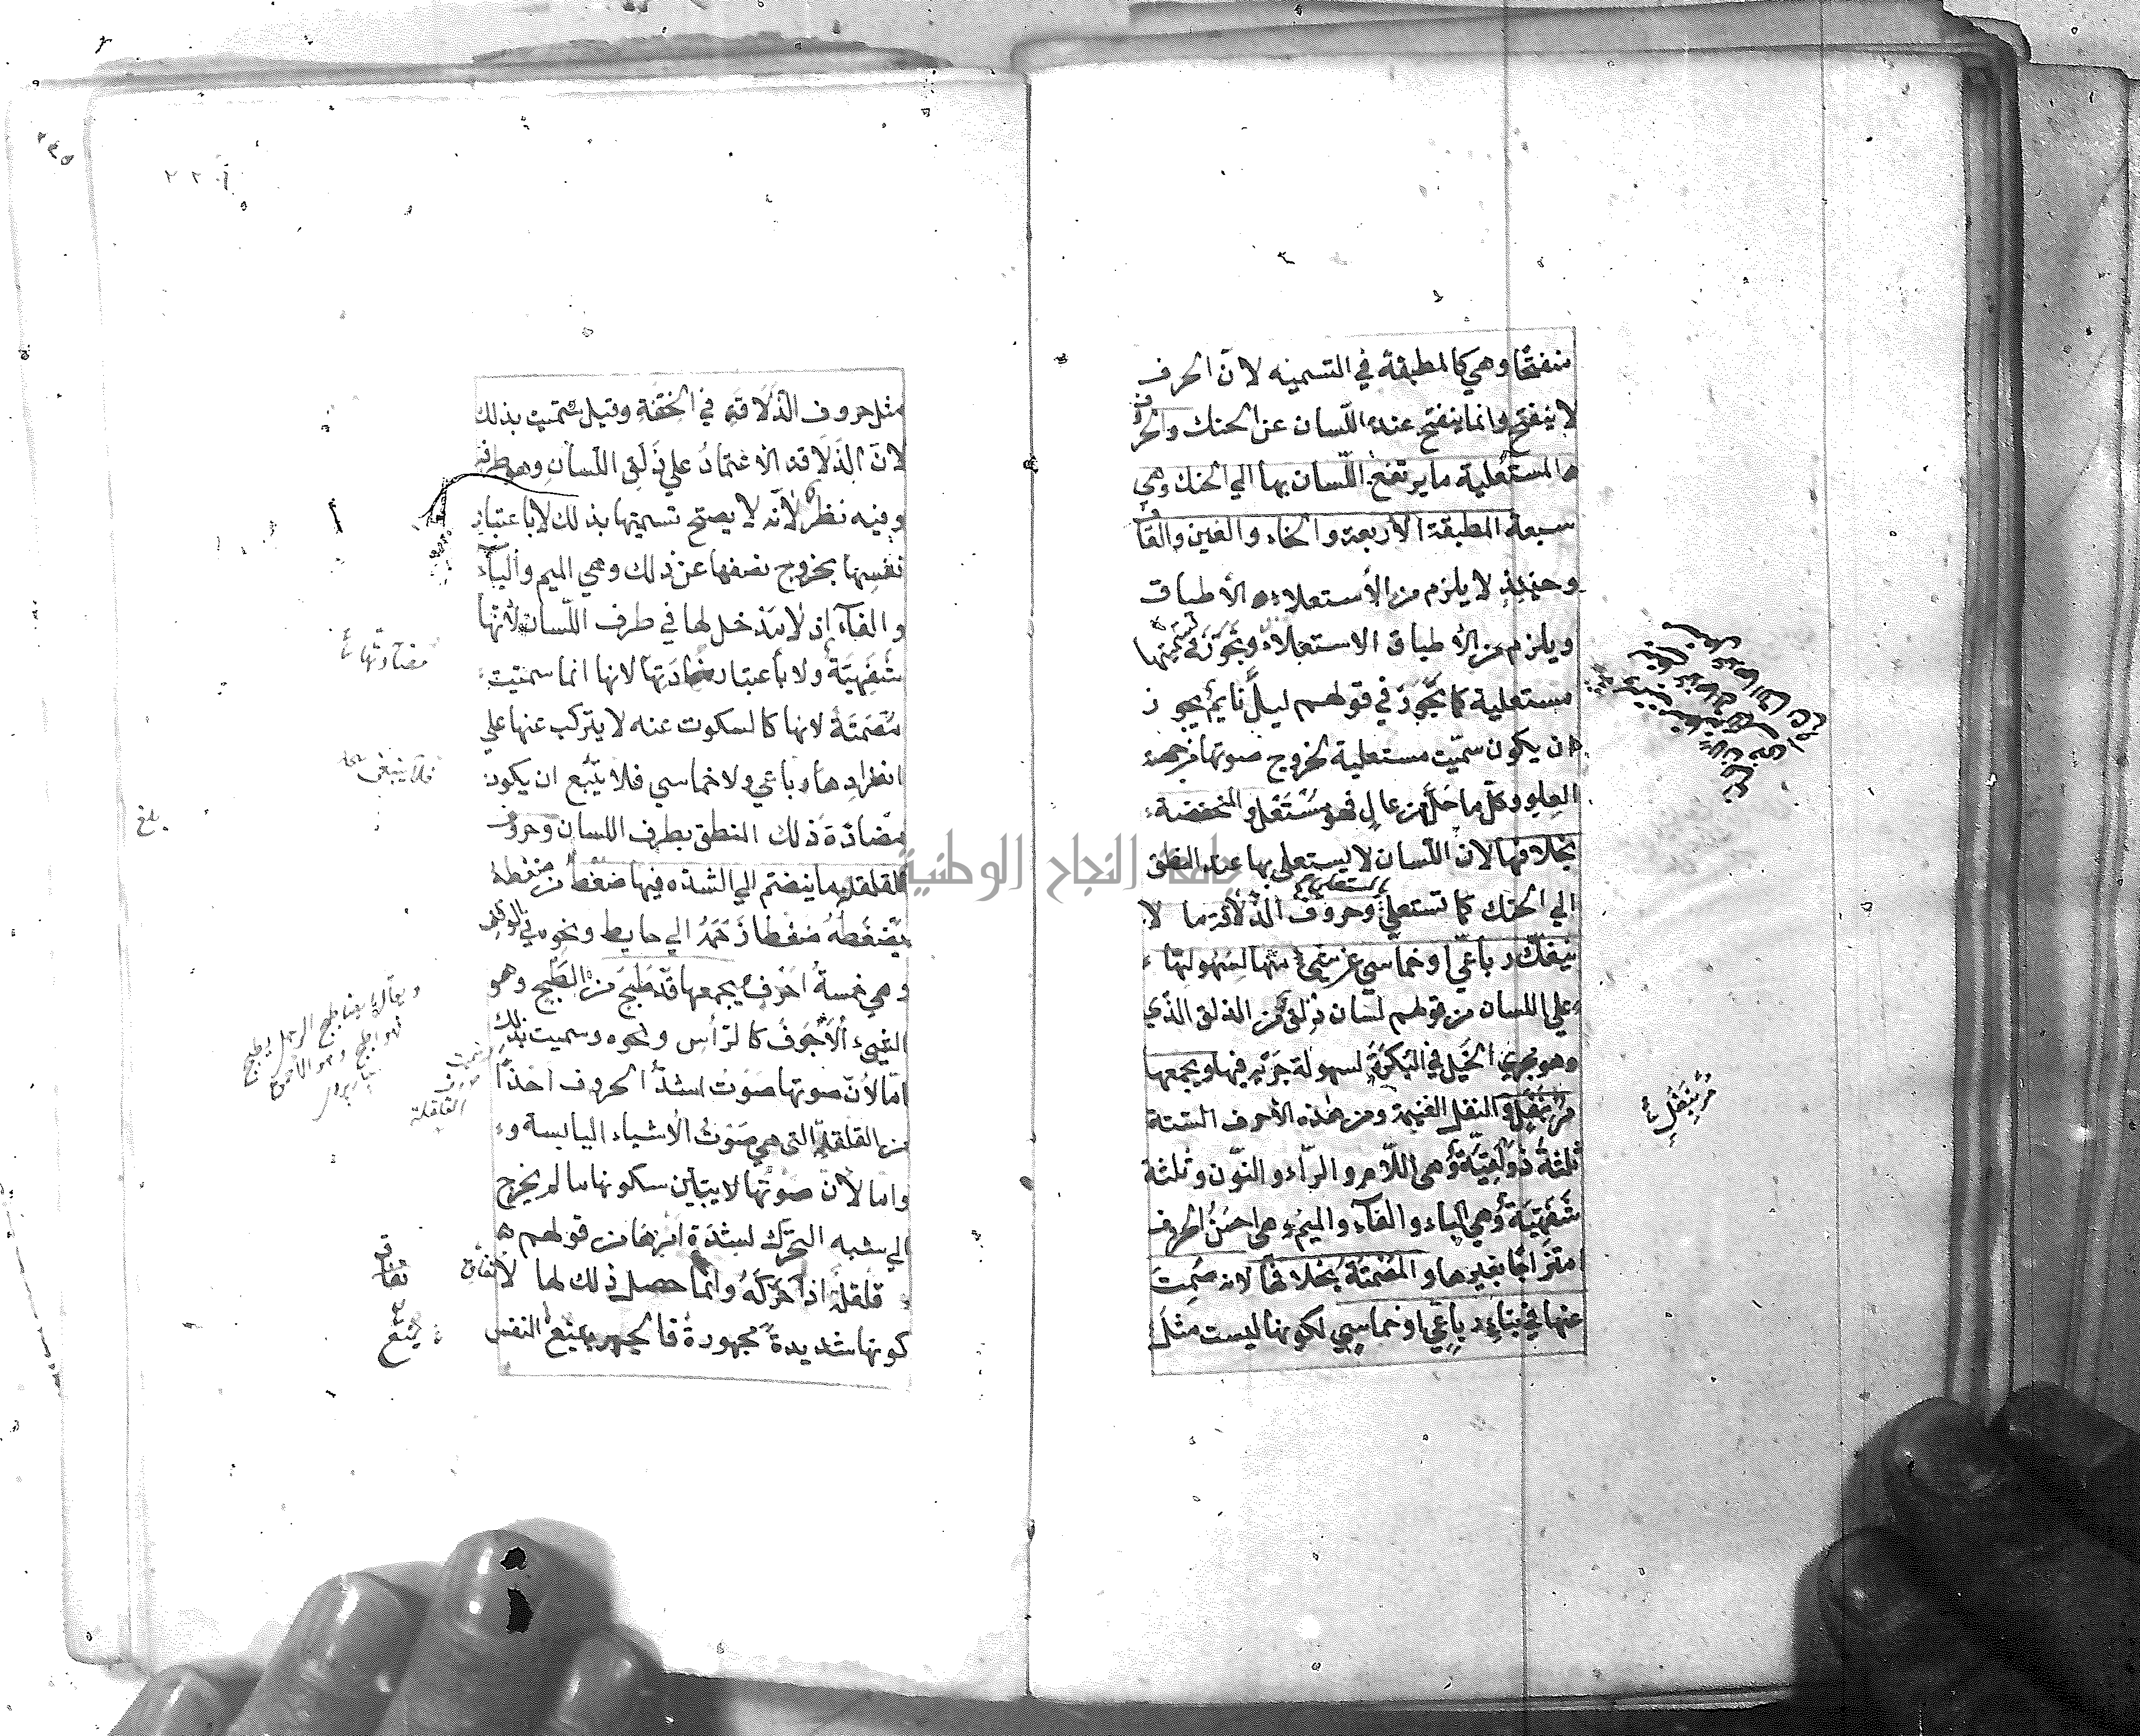 منفتحا وهي كالمطبقة في التسمية لان الحرف
لا ينفتح وانما ينفتح عنده اللسان عن الحنك والحروف
المستعلية ما يرتفع اللسان بها الي الحنك وهي
سبعة المطبقة الاربعة والخاء والغين والقاف
وحينئذ لا يلزم من الاستعلاء الاطباق
ويلزم من الاطباق الاستعلاء وتجوز في تسميتها
مستعلية كما تجوز في قولهم ليل نايم يجوز
ان يكون سميت مستعلية لخروج صوتها من جهة
العلو وكل ما حل من عال فهو مستعل والمنخفضة
بخلافها لان اللسان لا يستعلي بها عند النطق
الي الحنك كما تستعلي وحروف الذلاقة ما لا
ينفك رباعي او خماسي عن شيء منها لسهولتها
علي اللسان من قولهم لسان ذلق من الذلق الذي
وهو مجري الحبل في البكرة لسهولة جريه فيها ويجمعها
مر بنفل والنفل الغنيمة ومن هذه الاحرف الستة
ثلثة ذولقية وهي اللام والراء والنون وثلثة
شفهية وهي الباء والفاء والميم وهي احسن الحروف
امتزاجا بغيرها والمصمتة بخلافها لانه صمت
عنها في بناء رباعي او خماسي لكونها ليست مثل
مر بنفل
٢٢٠
٢٤٥
مثل حروف الذلاقة في الخفة وقيل سميت بذلك
لان الذلاقة الاعتماد علي ذلق اللسان وهو طرفه
وفيه نظر لانه لا يصح تسميتها بذلك لا باعتبار
نفسها بخروج نصفها عن ذلك وهي الميم والباء
والفاء اذ لا مدخل لها في طرف اللسان لانها
شفهية ولا باعتبار مضادتها لانها انما سميت
مصمتة لانها كالسكوت عنه لا يتركب عنها علي
انفرادها رباعي ولا خماسي فلا ينبع ان يكون
مضادة ذلك النطق بطرف اللسان وحروف
القلقلة ما ينضم الي الشدة فيها ضغط من ضغطه
يضغطه ضغطا زحمه الي حايط ونحوه في الوقف
وهي خمسة احرف يجمعها قد طبج من الطبج وهو
الشيء الاجوف كالراس ونحوه وسميت بذلك
اما لان صوتها صوت اشد الحروف اخذا
من القلقلة التي هي صوت الاشياء اليابسة و
واما لان صوتها لا يتبين سكونها ما لم يخرج
الي شبه التحرك لشدة امرها من قولهم
قلقلة اذا حركه وانما حصل ذلك لها لاتفاق
كونها شديدة مجهورة فالجهر يمنع النفس
مضادتها
فلا ينبغي
بلغ
القلقلة
يمنع
جامعة النجاح الوطنية